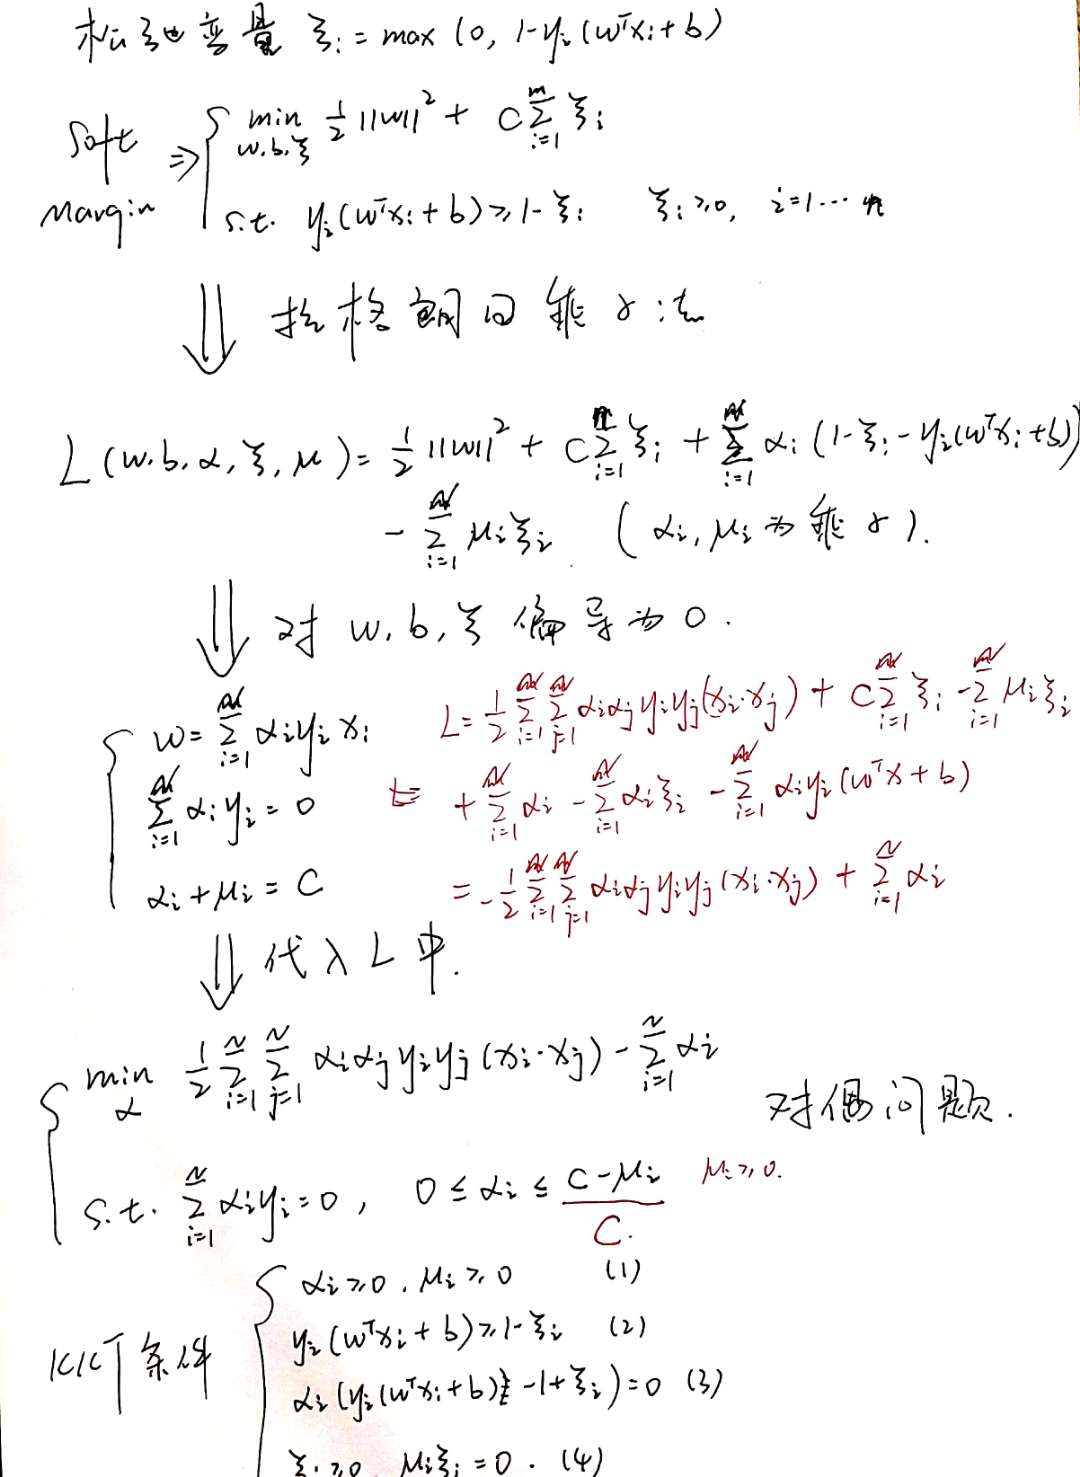 松弛变量 ξᵢ = max (0, 1-yᵢ(wᵀxᵢ+b)
Soft Margin ⇒ { min_{w.b.ξ} 1/2 ||w||² + C∑_{i=1}^{m} ξᵢ
s.t. yᵢ(wᵀxᵢ+b) ≥ 1-ξᵢ ξᵢ ≥ 0, i=1...
⇓ 拉格朗日乘子法
L(w.b.α,ξ,μ) = 1/2 ||w||² + C∑_{i=1} ξᵢ + ∑_{i=1}^{N} αᵢ (1-ξᵢ-yᵢ(wᵀxᵢ+b))
- ∑_{i=1}^{N} μᵢξᵢ (αᵢ, μᵢ为乘子).
⇓ 对 w.b,ξ 偏导为0.
{ w = ∑_{i=1}^{N} αᵢyᵢxᵢ
∑_{i=1}^{N} αᵢyᵢ = 0
αᵢ+μᵢ = C
L = 1/2 ∑_{i=1}^{N} ∑_{j=1}^{N} αᵢαⱼyᵢyⱼ(xᵢ·xⱼ) + C∑_{i=1}^{N} ξᵢ - ∑_{i=1}^{N} μᵢξᵢ
+ ∑_{i=1}^{N} αᵢ - ∑_{i=1}^{N} αᵢξᵢ - ∑_{i=1}^{N} αᵢyᵢ(wᵀx+b)
= -1/2 ∑_{i=1}^{N} ∑_{j=1}^{N} αᵢαⱼyᵢyⱼ(xᵢ·xⱼ) + ∑_{i=1}^{N} αᵢ
⇓ 代入L中.
{ min_α 1/2 ∑_{i=1}^{N} ∑_{j=1}^{N} αᵢαⱼyᵢyⱼ(xᵢ·xⱼ) - ∑_{i=1}^{N} αᵢ
对偶问题.
s.t. ∑_{i=1}^{N} αᵢyᵢ=0, 0 ≤ αᵢ ≤ C-μᵢ μᵢ≥0.
C.
KKT条件 { αᵢ≥0. μᵢ≥0 (1)
yᵢ(wᵀxᵢ+b)≥1-ξᵢ (2)
αᵢ(yᵢ(wᵀxᵢ+b) -1+ξᵢ)=0 (3)
ξᵢ≥0 μᵢξᵢ=0. (4)